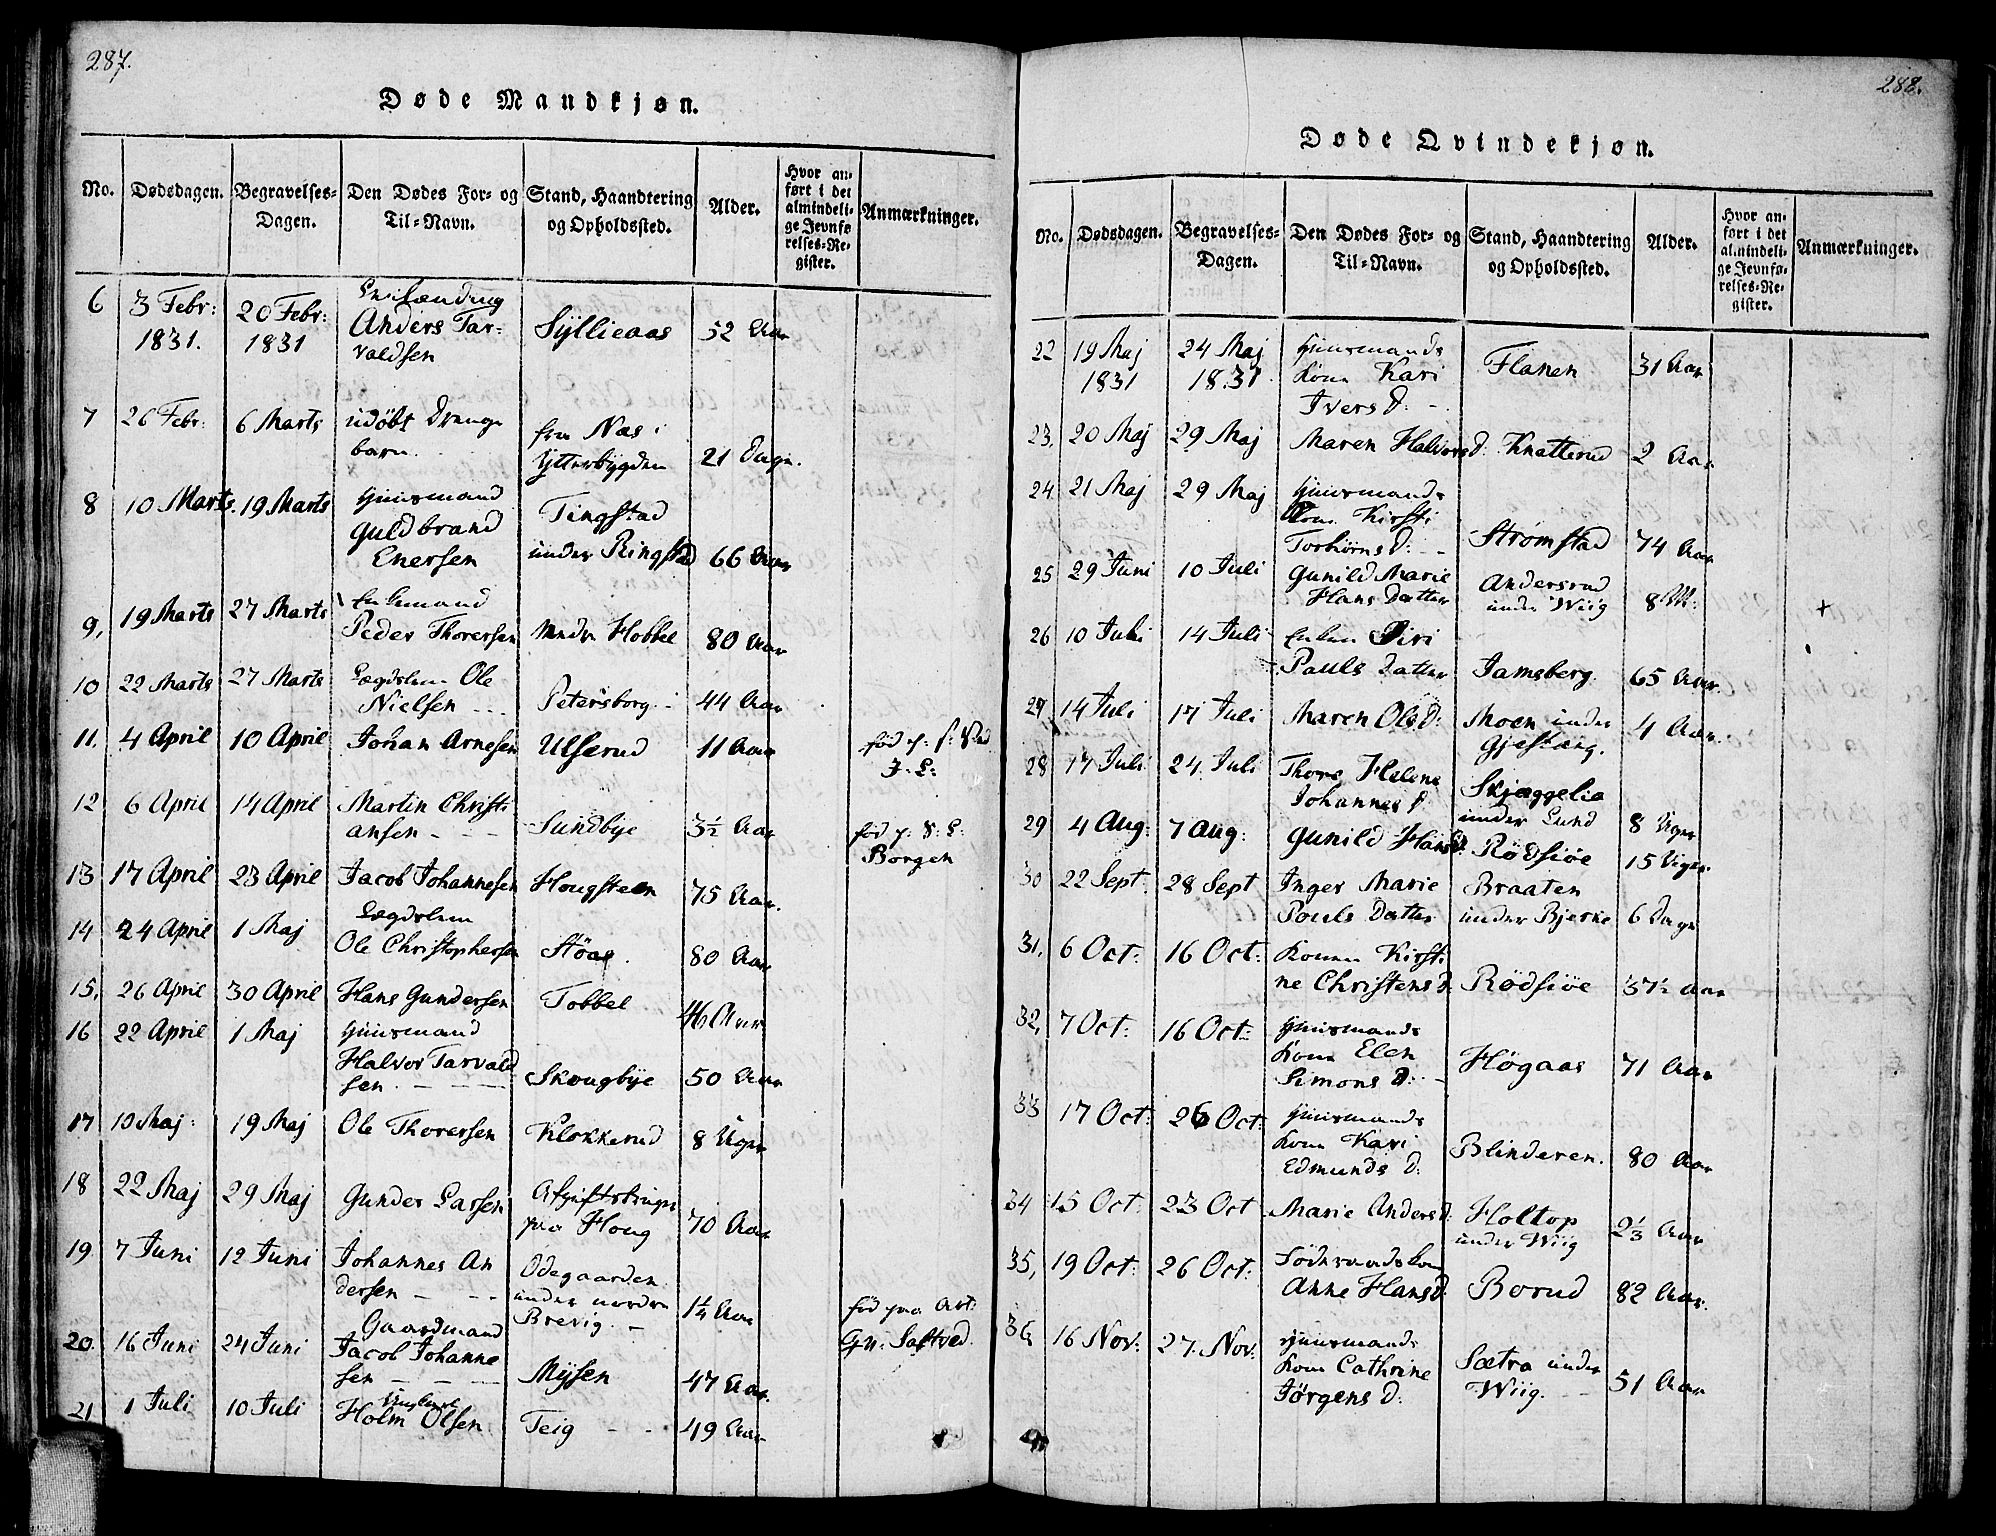 287.
Døde Mandkjøn.
No. Dødsdagen. Begravelses-Dagen. Den Dødes For- og Til-Navn. Stand, Haandtering og Opholdssted. Alder. Hvor anført i det almindelige Jevnførelses-Register. Anmærkninger.
6 3 Febr: 1831. 20 Febr: 1831 Anders Tarvaldsen Syllieaas 52 Aar
7 26 Febr: 6 Marts udøbt Drenge barn. fra Næs i Ytterbygden 21 Dage.
8 10 Marts 19 Marts Huusmand Guldbrand Enersen Tingstad under Ringstad 66 Aar
9, 19 Marts 27 Marts Enkemand Peder Thorersen Nedre Hobbel 80 Aar
10 22 Marts 27 Marts Lægdslem Ole Nielsen Petersborg 44 Aar
11. 4 April 10 April Johan Arnesen Ulserud 11 Aar
12 6 April 14 April Martin Christiansen Sundbye 3½ Aar Borgen
13 17 April 23 April Jacob Johannesen Hougsteen 75 Aar.
14 24 April 1 Maj Lægdslem Ole Christophersen Stöae 80 Aar
15, 26 April 30 April Hans Gundersen Tobbel 46 Aar
16 22 April 1 Maj Huusmand Halvor Tarvaldsen. Skougbye 50 Aar
17 10 Maj: 19 Maj Ole Thorersen Klokkerud 8 Uger
18 22 Maj 29 Maj Gunder Larsen Afgiftsbruger paa Houg 70 Aar
19 7 Juni 12 Juni Johannes Andersen Ödegaarden under nordre Brevig. 1¼ Aar
20. 16 Juni 24 Juni Gaardmand Jacob Johannesen Mysen 47 Aar.
21 1 Juli 10 Juli Holm Olsen Teig 49 Aar
288.
Døde Qvindekjøn.
No. Dødsdagen. Begravelses-Dagen. Den Dødes For- og Til-Navn. Stand, Haandtering og Opholdssted. Alder. Hvor anført i det almindelige Jevnførelses-Register. Anmærkninger.
22 19 Maj 1831 24 Maj 1831 Huusmands Kone Kari Ivers D: Flanen 31 Aar
23, 20 Maj 29 Maj Maren Halvors D: Knatterud 2 Aar
24 21 Maj 29 Maj Huusmands Kone Kirsti Torbörns D: Strømstad 74 Aar
25 29 Juni 10 Juli Gunild Marie Hans Datter Andersrud under Wiig 8 M: +
26 10 Juli 14 Juli Enken Siri Pauls Datter Jamsberg. 65 Aar.
27 14 Juli 17 Juli Maren Ols D: Moen under Gjestang. 4 Aar.
28 17 Juli 24 Juli Thore Helene Johannes D: Skjæggelia under Lund 8 Uger
29 4 Aug: 7 Aug: Gunild Hans D: Rödsiöe 15 Uger.
30 22 Sept. 28 Sept Inger Marie Pouls Datter Braaten under Bjerke 6 Dage
31, 6 Oct: 16 Oct: Konen Kirstine Christens D: Rödsiöe 37½ Aar
32, 7 Oct: 16 Oct: Huusmands Kone Elen Simons D: Høgaas 71 Aar
33 17 Oct: 26 Oct: Huusmands Kone Kari Edmunds D: Blinderen. 80 Aar
34 15 Oct: 23 Oct Marie Anders D: Holtop under Wiig 2⅓ Aar
35, 19 Oct: 26 Oct: Anne Hans D. Borud 82 Aar.
36 16 Nov: 27. Nov: Huusmands Kone Cathrine Jörgens D: Sætra under Wiig. 51 Aar